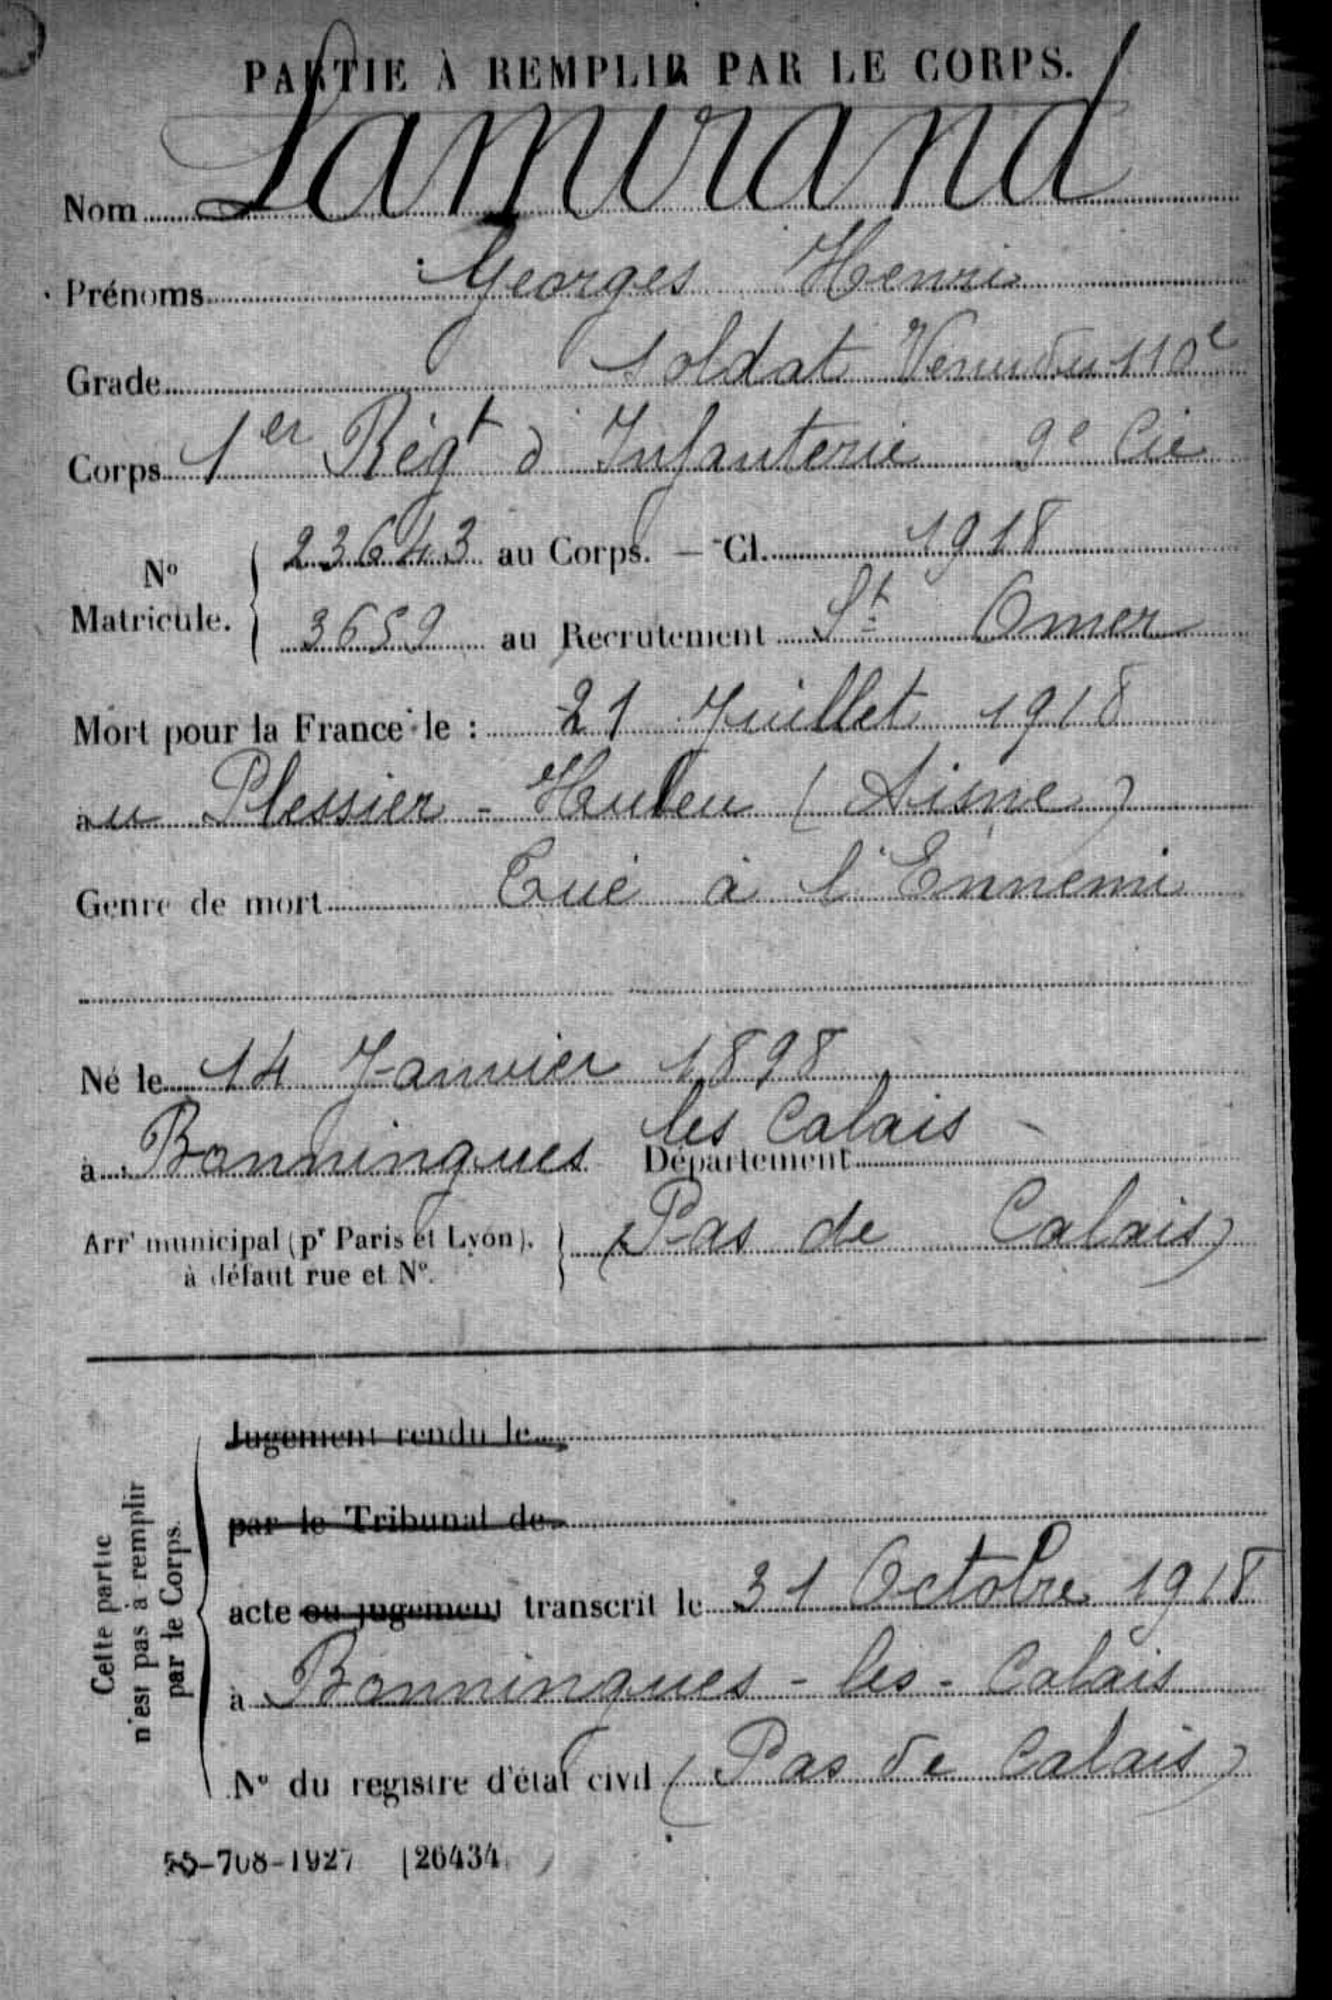 PARTIE À REMPLIR PAR LE CORPS.
Nom Lamirand
Prénoms Georges Henri
Grade Soldat Venu du 110e
Corps 1er Régt d'Infanterie 9e Cie
No Matricule. { 23643 au Corps. — Cl. 1918
3659 au Recrutement St Omer
Mort pour la France le : 21 Juillet 1918
au Plessier - Huleu (Aisne)
Genre de mort Tué à l'Ennemi
Né le 14 Janvier 1898
à Bonningues les Calais Département
Arrt municipal (pr Paris et Lyon), à défaut rue et No. } (Pas de Calais)
Cette partie n'est pas à remplir par le Corps.
Jugement rendu le
par le Tribunal de
acte ou jugement transcrit le 31 Octobre 1918
à Bonningues - les - Calais
No du registre d'état civil (Pas de Calais)
55-708-1927 [26434.